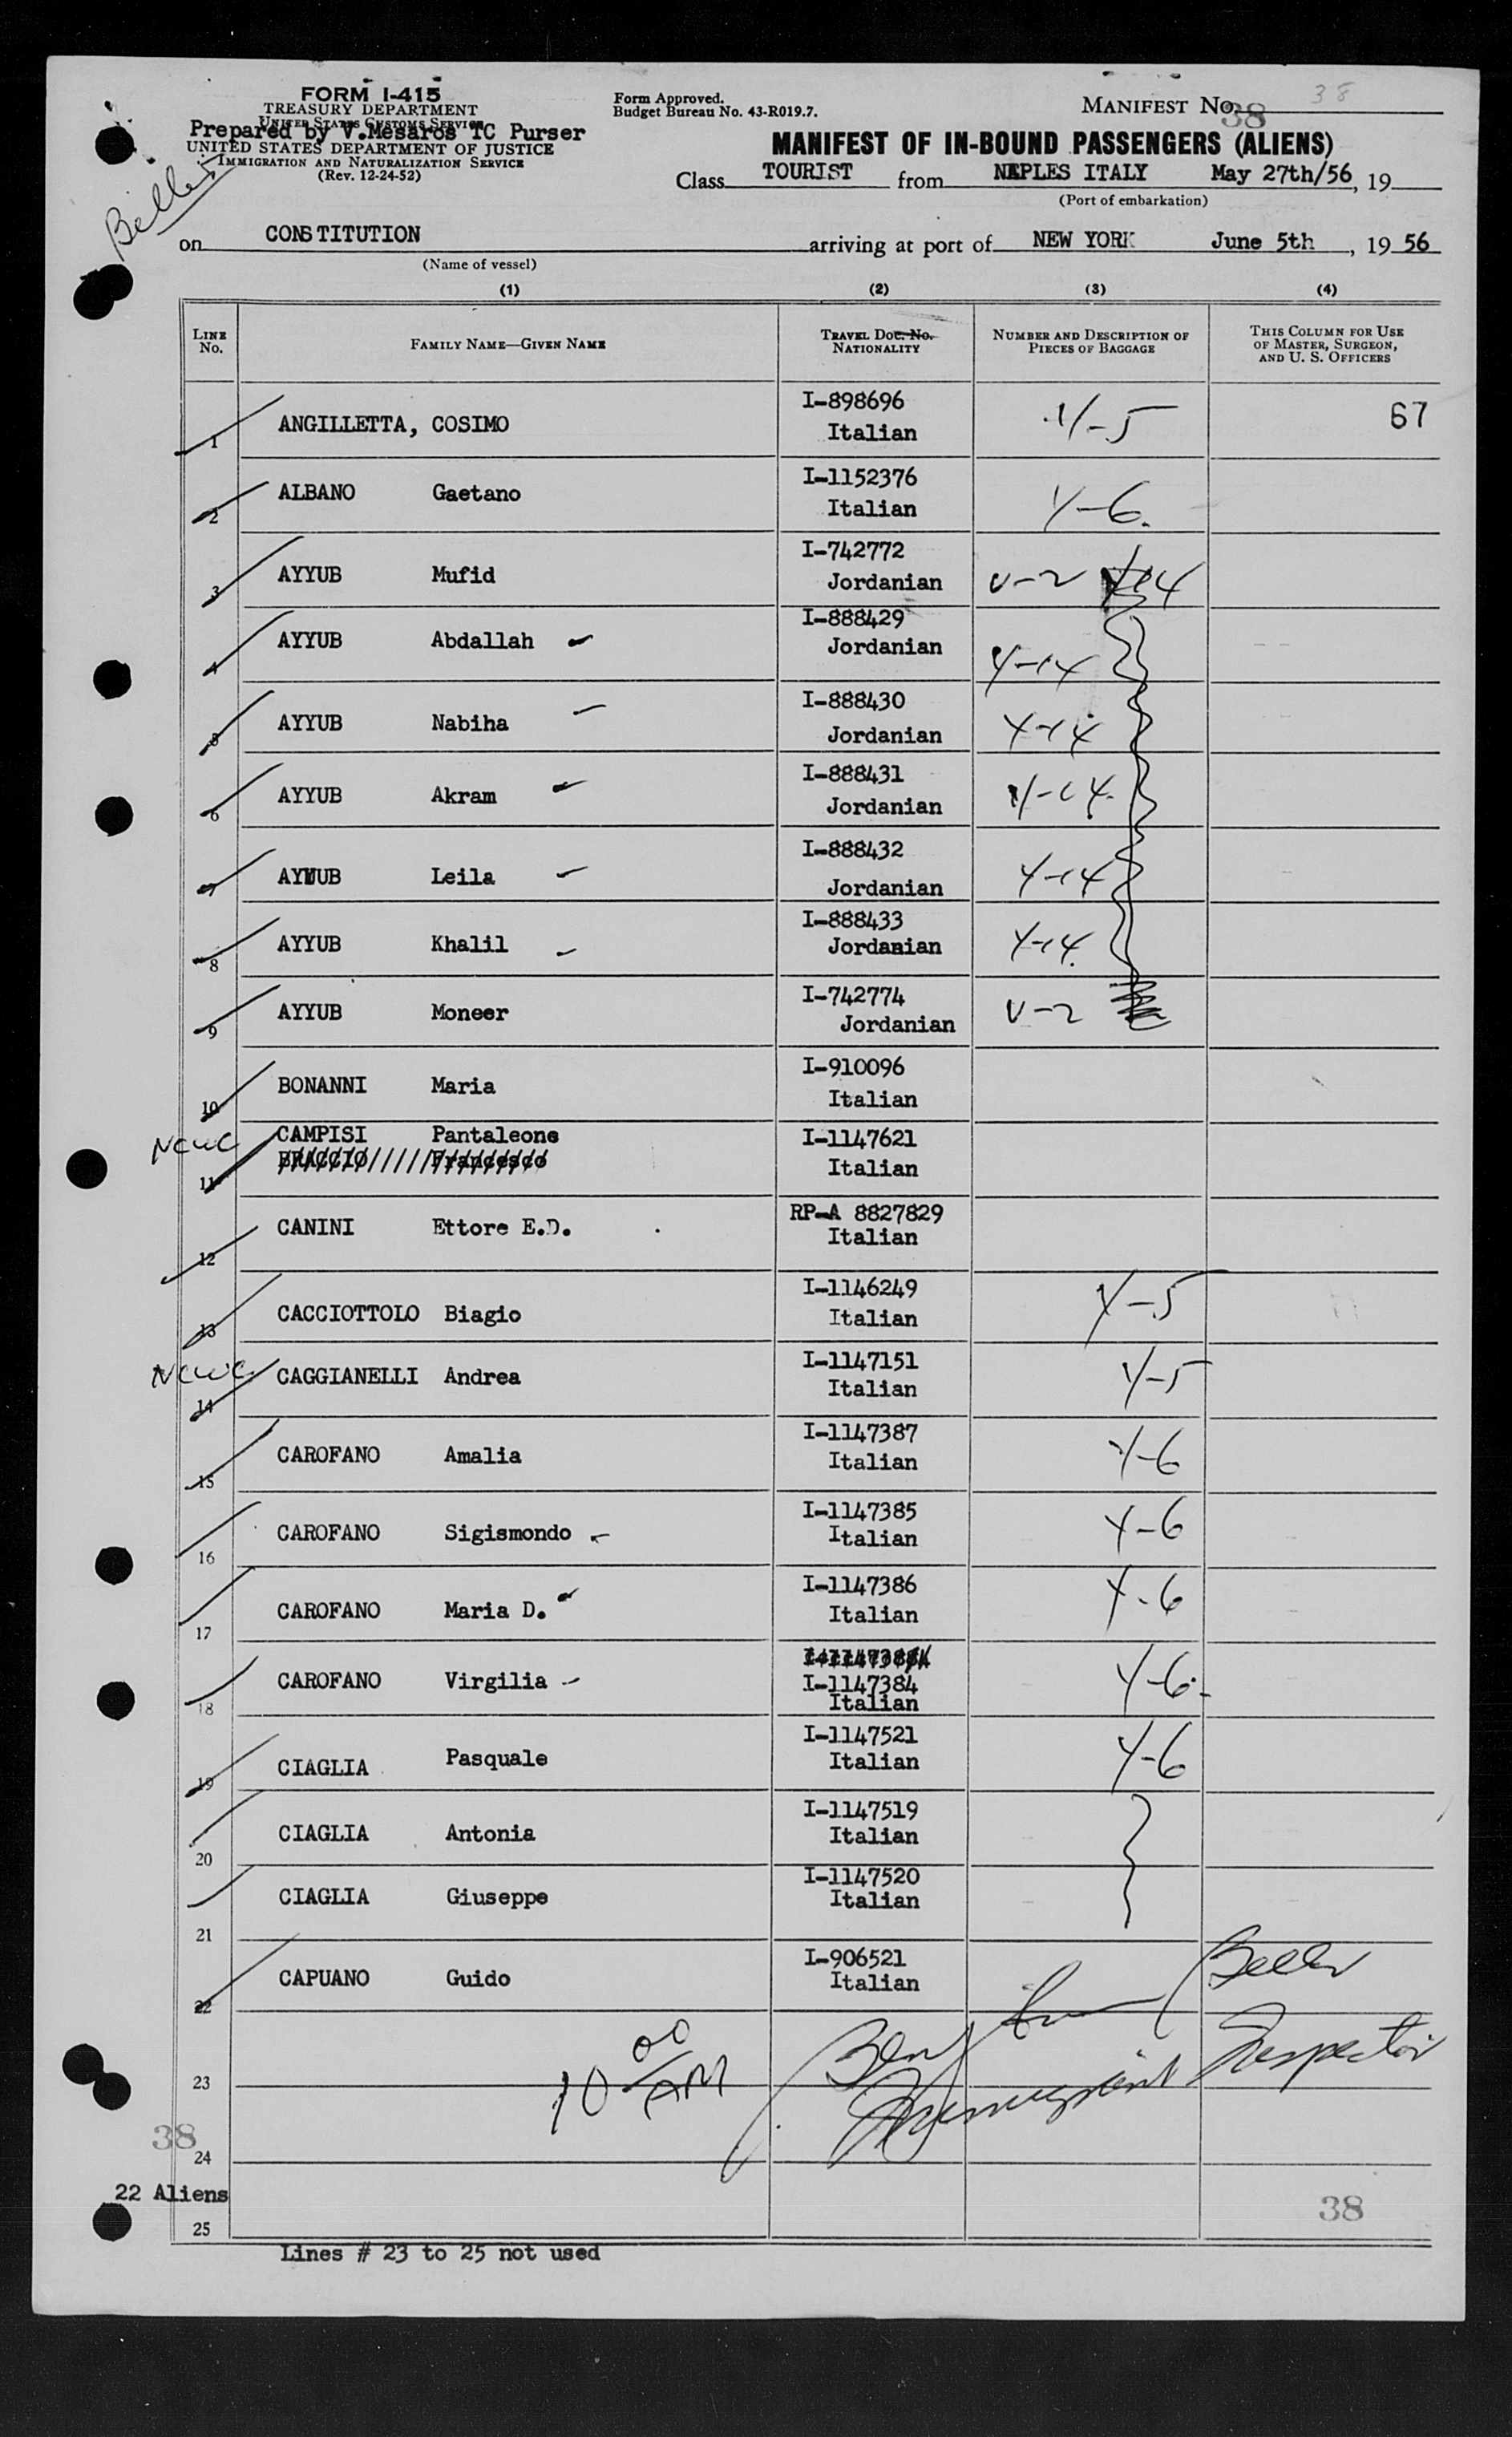 FORM I-415
TREASURY DEPARTMENT
UNITED STATES CUSTOMS SERVICE
Prepared by V.Mesaros TC Purser
UNITED STATES DEPARTMENT OF JUSTICE
IMMIGRATION AND NATURALIZATION SERVICE
(Rev. 12-24-52)
Form Approved.
Budget Bureau No. 43-R019.7.
MANIFEST No. 38
38
MANIFEST OF IN-BOUND PASSENGERS (ALIENS)
Class TOURIST from NAPLES ITALY May 27th/56, 19
(Port of embarkation)
on CONSTITUTION arriving at port of NEW YORK June 5th, 19 56
(Name of vessel)
(1) (2) (3) (4)
LINE No. FAMILY NAME—GIVEN NAME TRAVEL DOC. No. NATIONALITY NUMBER AND DESCRIPTION OF PIECES OF BAGGAGE THIS COLUMN FOR USE OF MASTER, SURGEON, AND U. S. OFFICERS
1 ANGILLETTA, COSIMO I-898696 Italian Y-5 67
2 ALBANO Gaetano I-1152376 Italian Y-6.
3 AYYUB Mufid I-742772 Jordanian V-2
4 AYYUB Abdallah I-888429 Jordanian Y-14
5 AYYUB Nabiha I-888430 Jordanian Y-14
6 AYYUB Akram I-888431 Jordanian Y-14
7 AYYUB Leila I-888432 Jordanian Y-14
8 AYYUB Khalil I-888433 Jordanian Y-14
9 AYYUB Moneer I-742774 Jordanian V-2
10 BONANNI Maria I-910096 Italian
NCWC
11 CAMPISI Pantaleone I-1147621 Italian
BRACCIO Francesco
12 CANINI Ettore E.D. RP-A 8827829 Italian
13 CACCIOTTOLO Biagio I-1146249 Italian Y-5
NCWC
14 CAGGIANELLI Andrea I-1147151 Italian Y-5
15 CAROFANO Amalia I-1147387 Italian Y-6
16 CAROFANO Sigismondo I-1147385 Italian Y-6
17 CAROFANO Maria D. I-1147386 Italian Y-6
18 CAROFANO Virgilia I-1147384 Italian Y-6
19 CIAGLIA Pasquale I-1147521 Italian Y-6
20 CIAGLIA Antonia I-1147519 Italian
21 CIAGLIA Giuseppe I-1147520 Italian
22 CAPUANO Guido I-906521 Italian
23
10 00 AM
Immigrant Inspector
38
24
22 Aliens
38
25
Lines # 23 to 25 not used